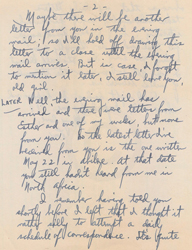 - 2 -
Maybe there will be another
letter from you in the evening
mail, and I'll hold off bringing this
letter to a close until the evening
mail arrives. But in case I forget
to mention it later, I still love you,
old girl.
LATER Well, the evening mail has
arrived and there five letters from
Carter and one of my wife, but none
from you. So the latest letter I've
received from you is the one written
May 22 in Abilene. At that date
you still hadn't heard from me in
North Africa.
I remember having told you
shortly before I left that I thought it
rather silly to attempt a daily
schedule of correspondence. It's quite